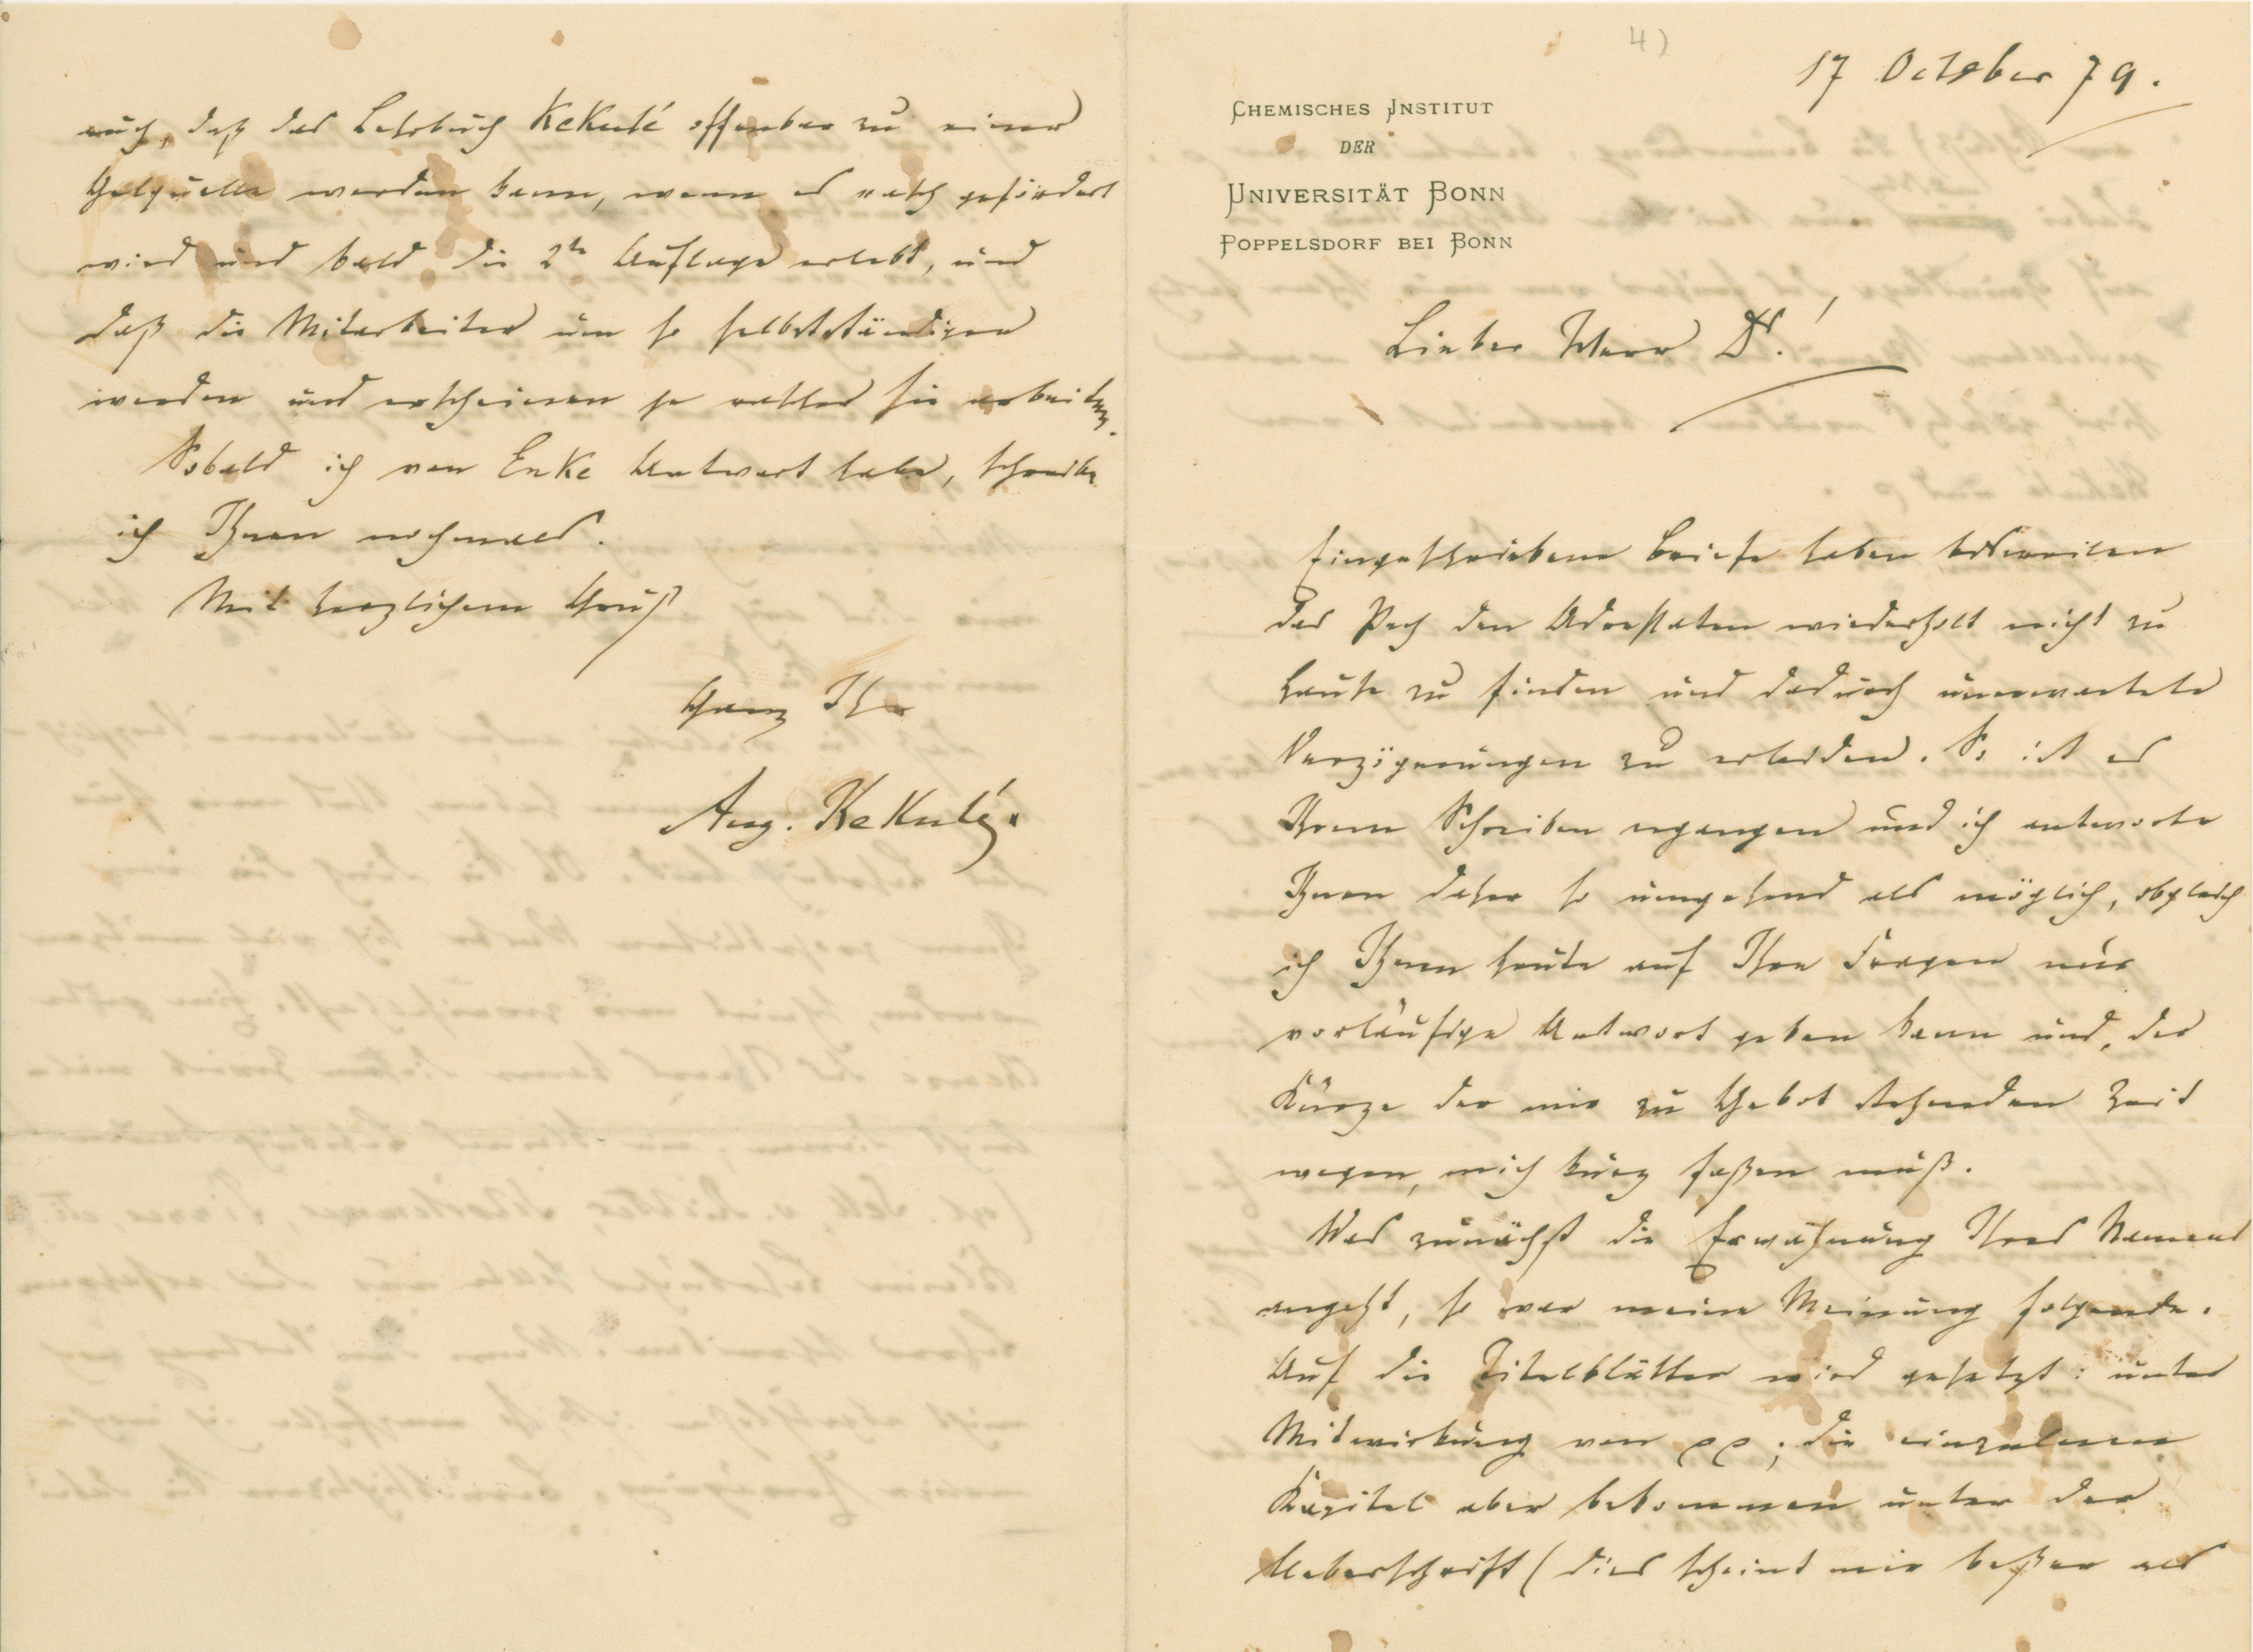 4)
17 October 79.
CHEMISCHES INSTITUT
DER
UNIVERSITÄT BONN
POPPELSDORF BEI BONN
Lieber Herr Dr!
Eingeschriebene Briefe haben bisweilen
das Pech den Adressaten wiederholt nicht zu
Hause zu finden und dadurch unerwartete
Verzögerungen zu erleiden. So ist es
Ihrem Schreiben ergangen und ich antworte
Ihnen daher so umgehend als möglich, obgleich
ich Ihnen heute auf Ihre Fragen nur
vorläufige Antwort geben kann und, der
Kürze der mir zu Gebot stehenden Zeit
wegen, mich kurz faßen muß.
Was zunächst die Erwähnung Ihres Namens
angeht, so war meine Meinung folgende.
Auf die Titelblätter wird gesetzt: unter
Mitwirkung von pp; die einzelnen
Kapitel aber bekommen unter der
Ueberschrift (dies scheint mir beßer als
auch, daß das Lehrbuch Kekulé offenbar zu einer
Gelquelle werden kann, wenn es rasch gefördert
wird und bald die 2te Auflage erlebt, und
daß die Mitarbeiter um so selbstständiger
werden und erscheinen je rascher sie arbeiten.
Sobald ich von Enke Antwort habe, schreibe
ich Ihnen nochmals.
Mit herzlichem Gruß
Ganz Ihr
Aug. Kekulé.